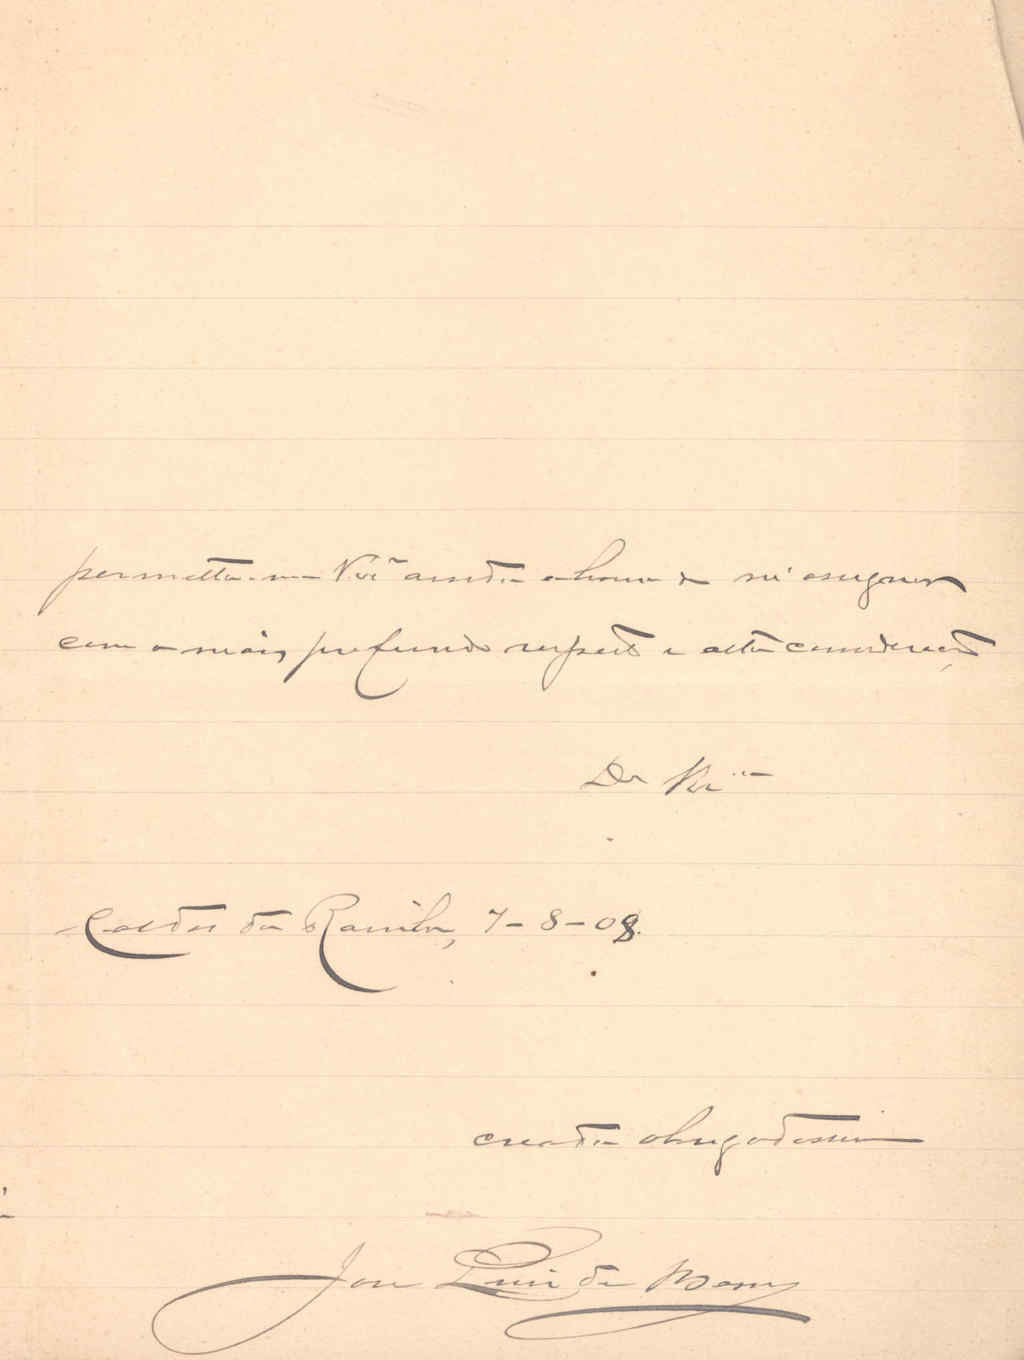 permitta-me V. Exª ainda a honra de me assignar
com o mais profundo respeito e alta consideração
De V. Exª
Caldas da Rainha, 7-8-08.
creado obrigadissimo
José Luiz de